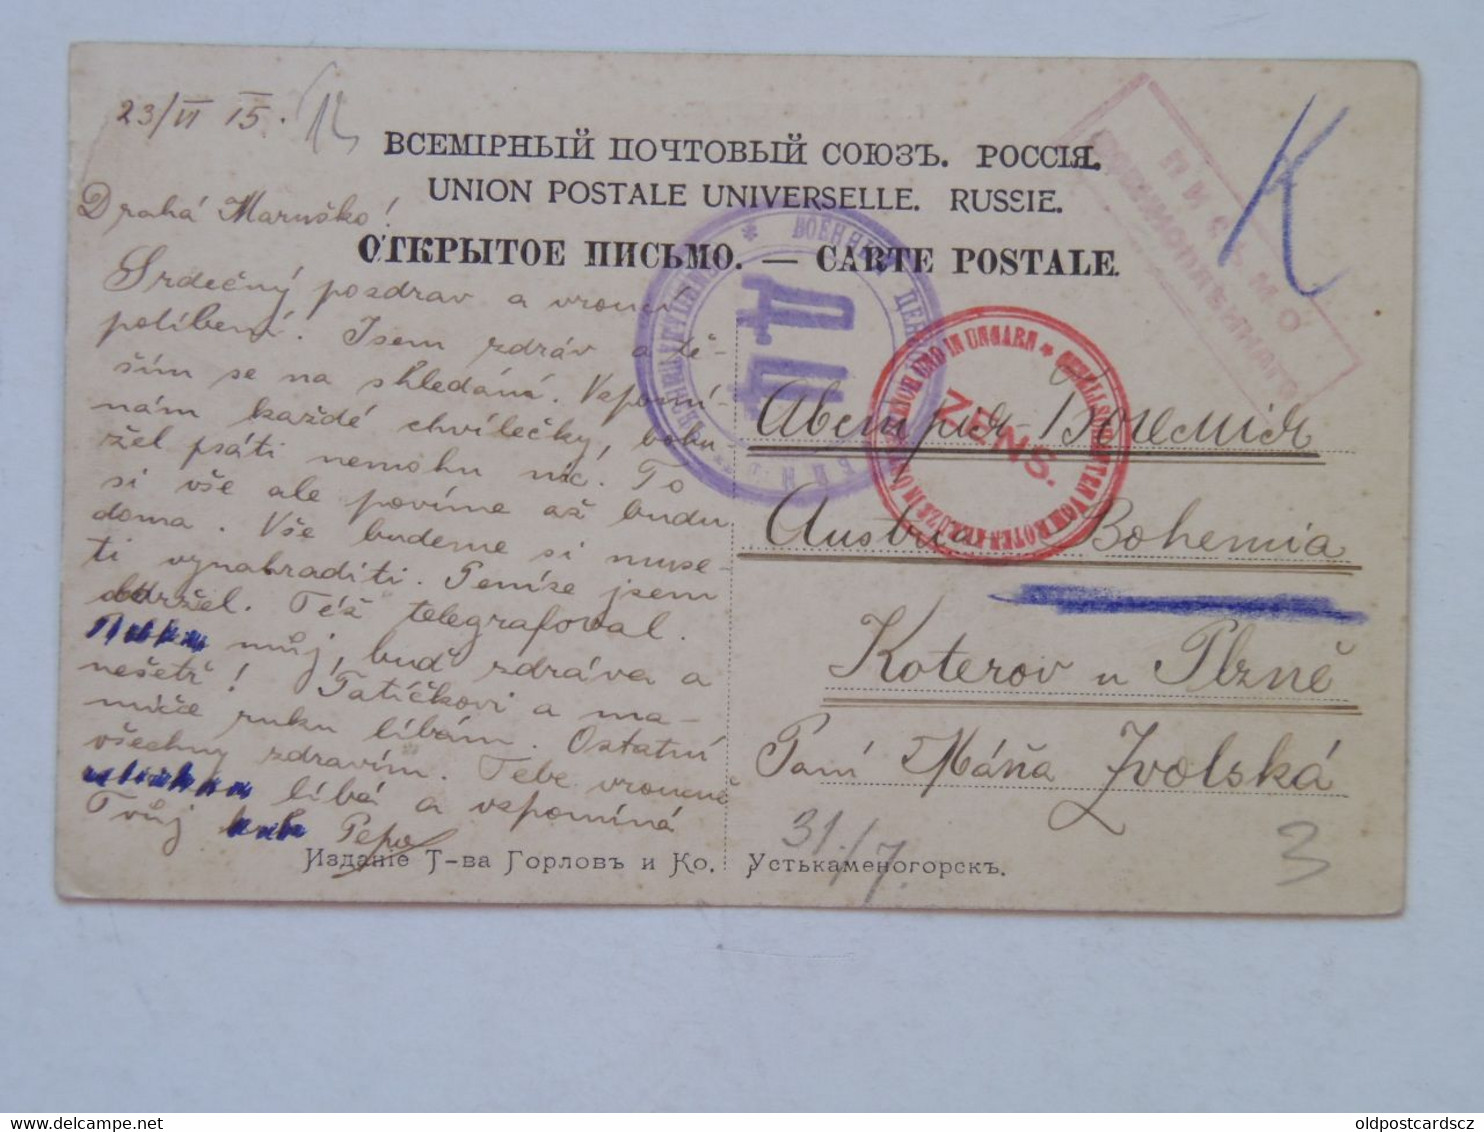 23/VI 15.
ВСЕМІРНЫЙ ПОЧТОВЫЙ СОЮЗЪ. РОССІЯ.
UNION POSTALE UNIVERSELLE. RUSSIE.
ОТКРЫТОЕ ПИСЬМО. — CARTE POSTALE.
K
ПИСЬМО
ВОЕННОПЛѢННАГО
ВОЕННАЯ
ZENS.
Drahá Maruško!
Srdečný pozdrav a vroucí
políbení. Jsem zdráv a tě-
ším se na shledáná. Vzpomí-
nám každé chvílečky, bohu
žel psáti nemohu nic. To
si vše ale povíme až budu
doma. Vše budeme si muse-
ti vynahraditi. Peníze jsem
obdržel. Též telegrafoval.
můj, buď zdráva a
nešetř! Tatíčkovi a ma-
mičce ruku líbám. Ostatní
všechny zdravím. Tebe vroucně
líbá a vzpomíná
Tvůj Pepa
Австрія-Богемія
Austria Bohemia
Koterov u Plzně
Paní Máňa Zvolská
31./7.
3
Изданіе Т-ва Горловъ и Ко. Устькаменогорскъ.
oldpostcardscz